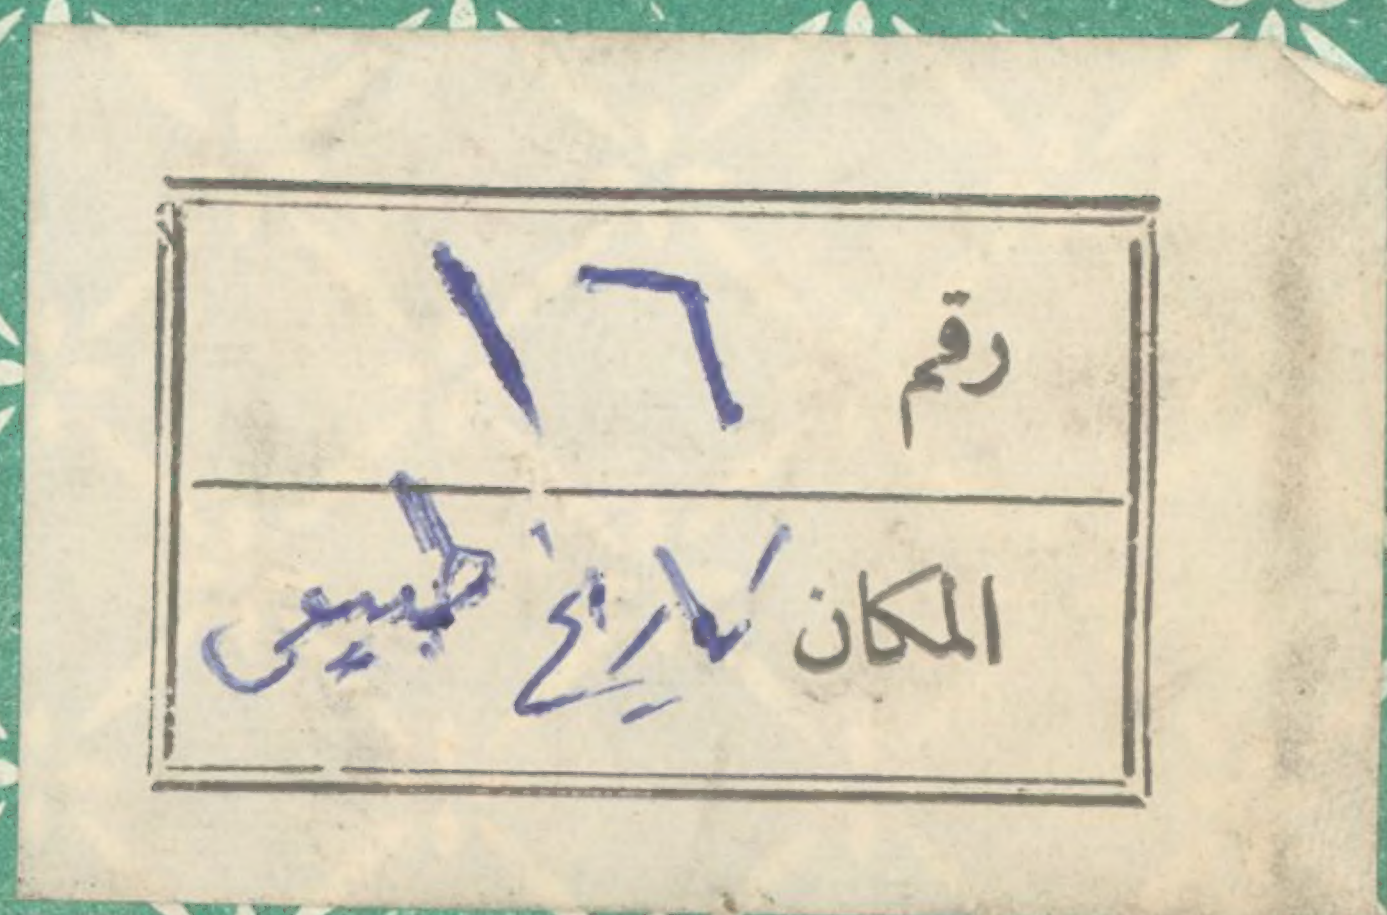 رقم ١٦
المكان تاريخ طبيعي